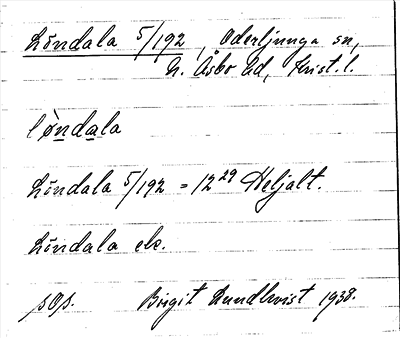 Löndala 5/192, Oderljunga sn,
N. Åsbo hd, Krist. l.
lø̀ndala
Löndala 5/192 = 12²⁹ Heljalt.
Löndala elr.
Birgit Lundkvist 1938.